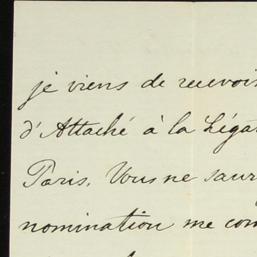 je viens de recevoir
d'Attaché à la Légat
Paris. Vous ne saur
nomination me com